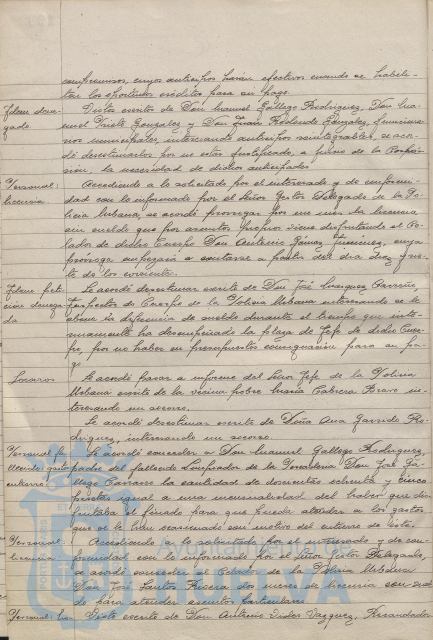 compromisos, cuyos anticipos harán efectivos cuando se habili-
ten los oportunos créditos para su pago.
Idem dene-
gado.
Vistos escritos de Don Manuel Gallego Rodríguez, Don Ma-
nuel Prieto González y Don Juan Redondo González, funciona-
rios municipales, interesando anticipos reintegrables, se acor-
dó desestimarlos por no estar justificado, a juicio de la Corpora-
ción, la necesidad de dichos anticipados.
Personal:
licencia.
Accediendo a lo solicitado por el interesado y de conformi-
dad con lo informado por el Señor Gestor Delegado de la Po-
licía Urbana, se acordó prorrogar por un mes la licencia
sin sueldo que por asuntos propios viene disfrutando el Ce-
lador de dicho Cuerpo Don Antonio Gómez Jiménez, cuya
prórroga empezará a contarse a partir del día diez y sie-
te de los corrientes.
Idem peti-
ción denega-
da
Se acordó desestimar escrito de Don José Márquez Carreño,
Inspector del Cuerpo de la Policía Urbana interesando se le
abone la diferencia de sueldo durante el tiempo que inte-
rinamente ha desempeñado la plaza de Jefe de dicho Cuer-
po, por no haber en presupuestos consignación para su pa-
go.
Socorros
Se acordó pasar a informe del Señor Jefe de la Policía
Urbana escrito de la vecina pobre María Cabrera Bravo in-
teresando un socorro.
Se acordó desestimar escrito de Doña Ana Garrido Ro-
dríguez, interesando un socorro.
Personal fa-
llecido: gastos
entierro.
Se acordó conceder a Don Manuel Gallego Rodríguez,
padre del fallecido Limpiador de la Pescadería Don José Ga-
llego Carrasco la cantidad de doscientas ochenta y cinco
pesetas igual a una mensualidad del haber que dis-
frutaba el finado para que pueda atender a los gastos
que se le han ocasionado con motivo del entierro de este.
Personal:
licencia
Accediendo a lo solicitado por el interesado y de con-
formidad con lo informado por el Señor Gestor Delegado,
se acordó conceder al Celador de la Policía Urbana
Don José Santos dos meses de licencia sin suel-
do para atender asuntos particulares.
Personal: li-
Visto escrito de Don Antonio Vázquez, Recaudador
HUELVA